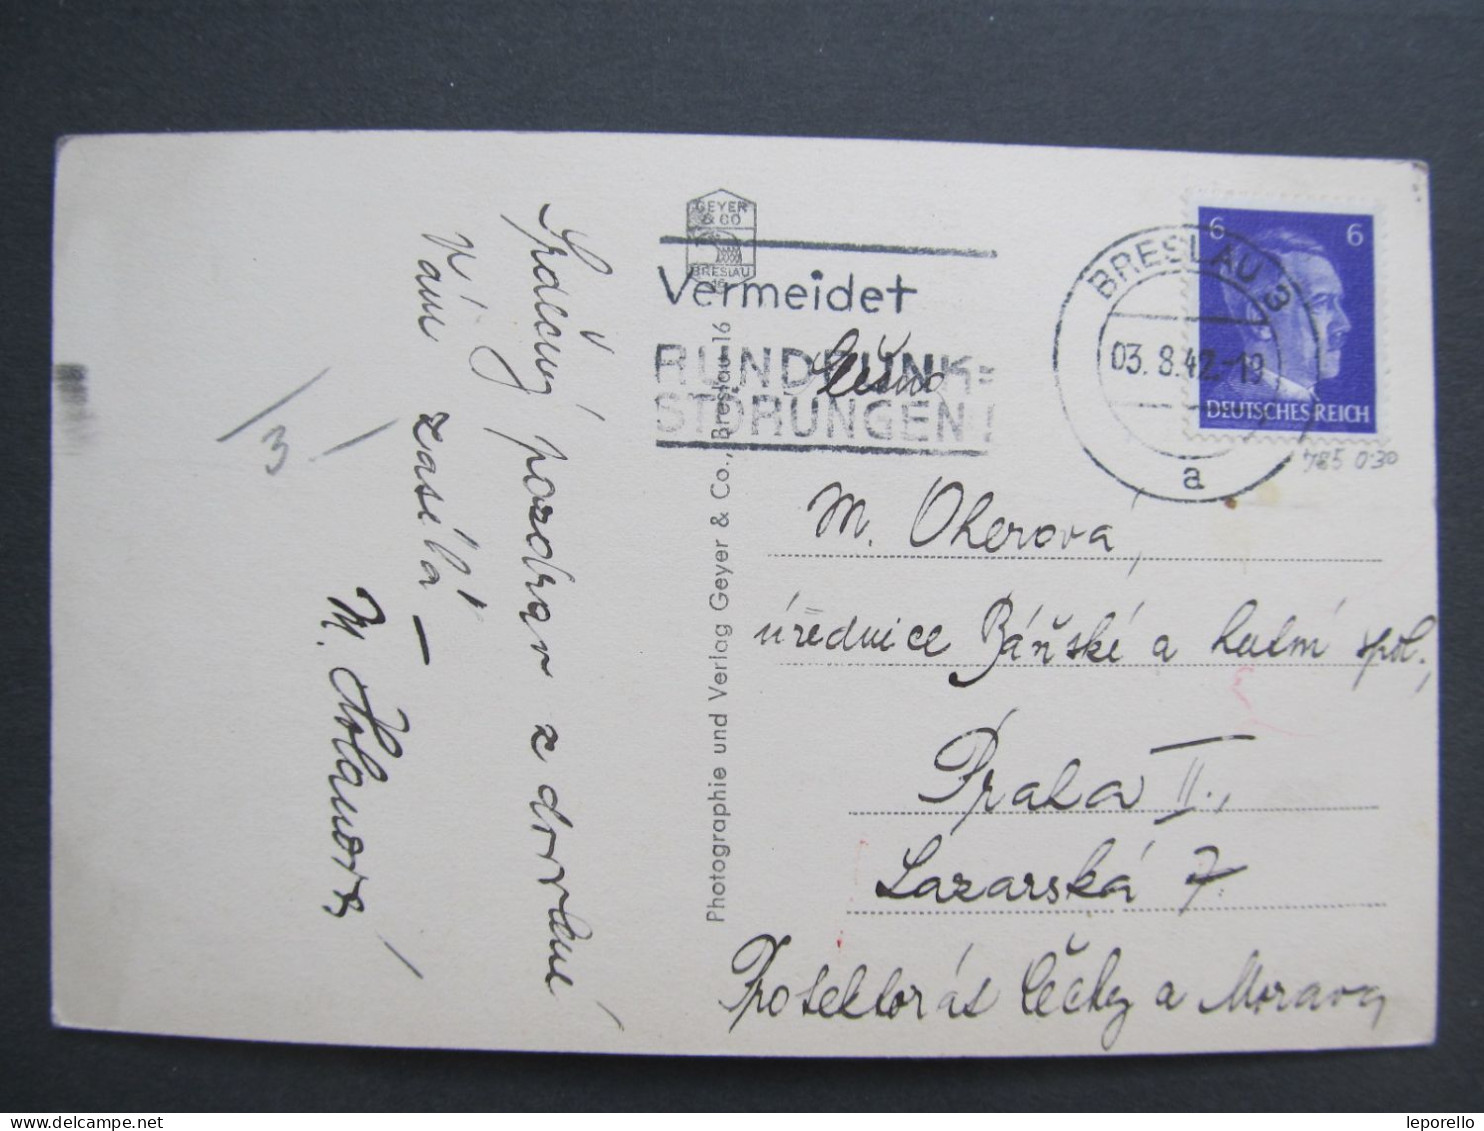 GEYER
& CO
BRESLAU
16
Vermeidet
RUNDFUNK-
STÖRUNGEN!
BRESLAU 3
03. 8. 42.-19
a
6 6
DEUTSCHES REICH
785 0·30
Srdečný pozdrav z dovolené
Vám zasílá –
M.
3
Photographie und Verlag Geyer & Co., Breslau 16
M. Oherova,
úřednice Báňské a hutní spol.,
Praha II.,
Lazarská 7.
Protektorát Čechy a Morava
leporello